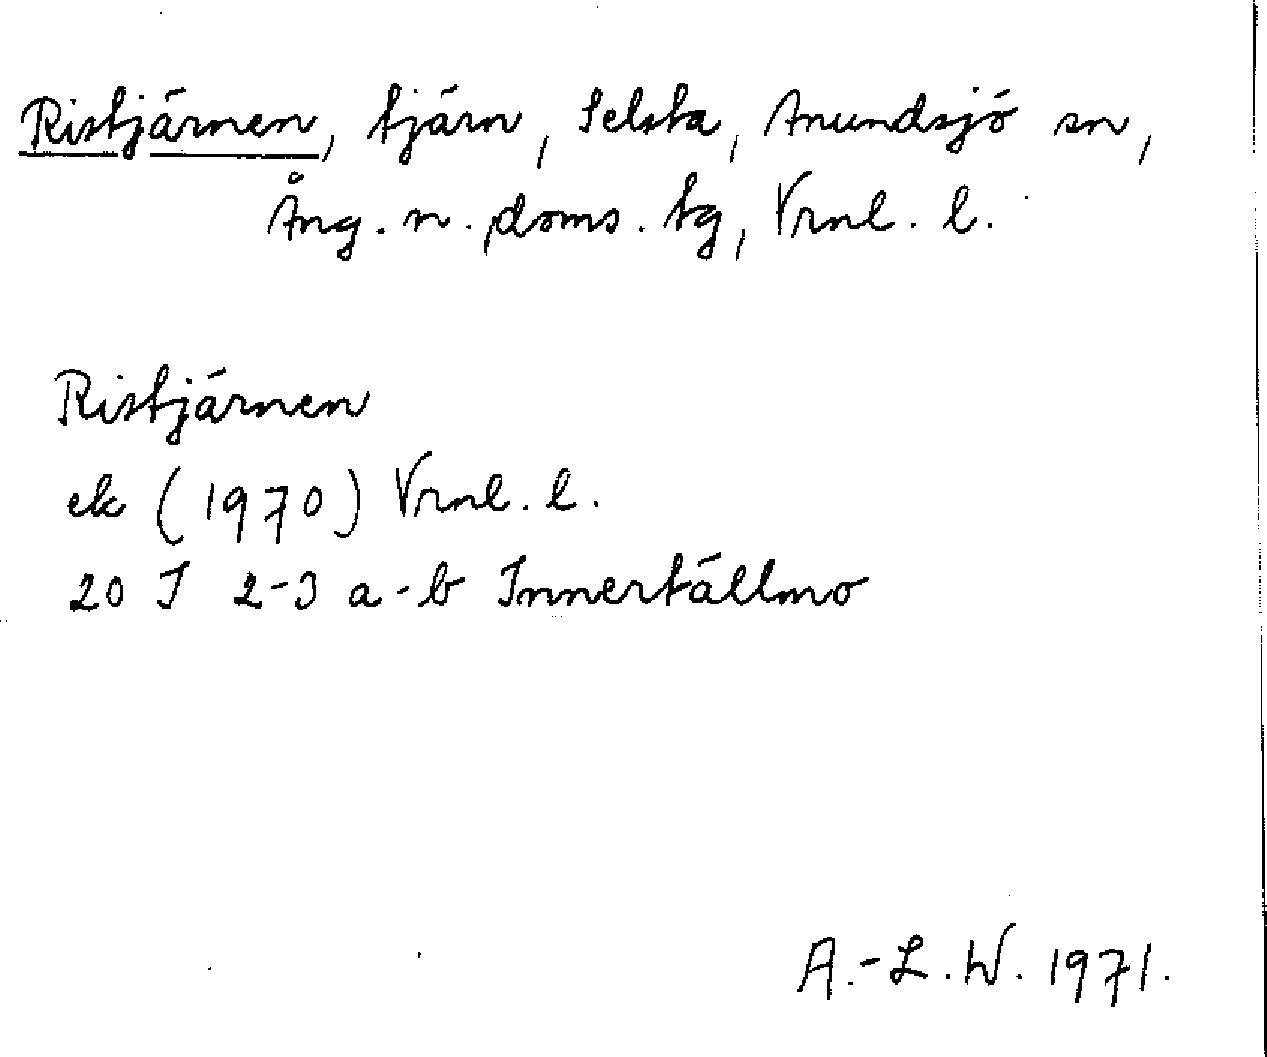 Ristjärnen, tjärn, Selsta, Anundsjö sn,
Ång. n. doms. tg, Vrnl. l.
Ristjärnen
ek (1970) Vrnl. l.
20 I 2-3 a-b Innertällmo
A.-L.W. 1971.